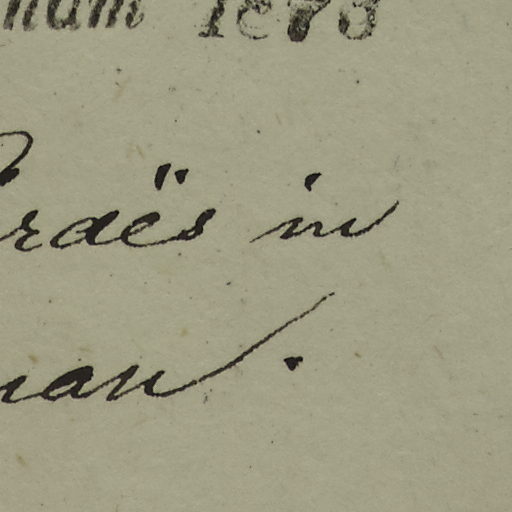 num 1873
raës in
nan.